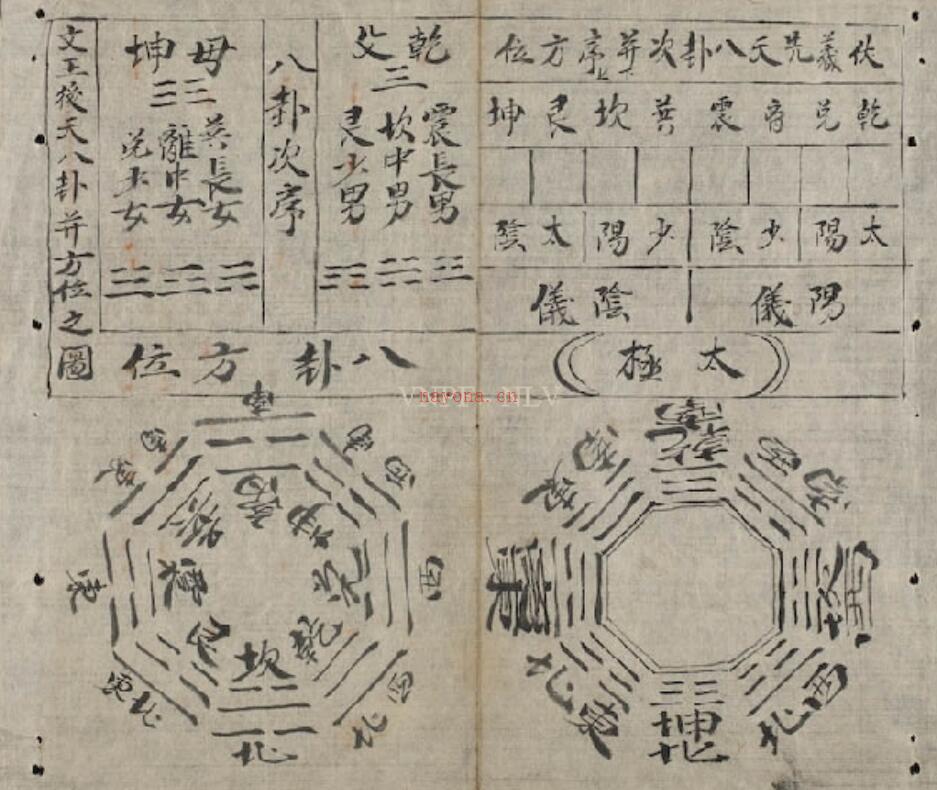 伏羲先天八卦次序并方位
乾兌离震巽坎艮坤
太陽 少陰 少陽 太陰
陽儀 陰儀
太極
乾父
三
震長男
坎中男
艮少男
八卦次序
母坤
巽長女
離中女
兌少女
文王後天八卦并方位之圖
八卦方位
南
乾
東南
西南
離
東
坎
西
東北
西北
坤
北
南
東南
西南
巽
离
坤
東
震
兌
西
艮
坎
乾
東北
西北
北
VNPF - NLV
nayona.cn